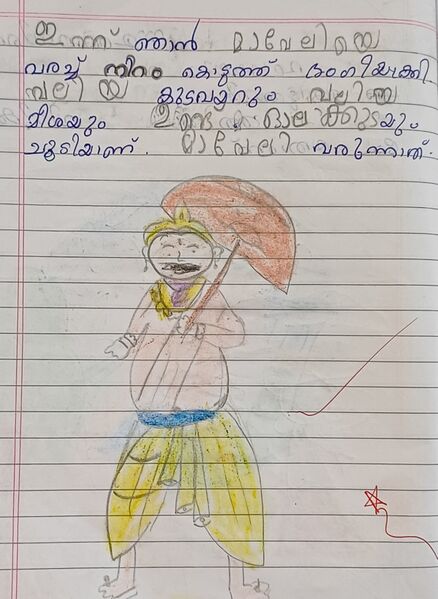 ഇന്ന് ഞാൻ മാവേലിയെ
വരച്ച് നിറം കൊടുത്ത് ഭംഗിയാക്കി
വലിയ കുടവയറും വലിയ
മീശയും ഉണ്ട്. ഓലക്കുടയും
ചൂടിയാണ്. മാവേലി വരുന്നത്.